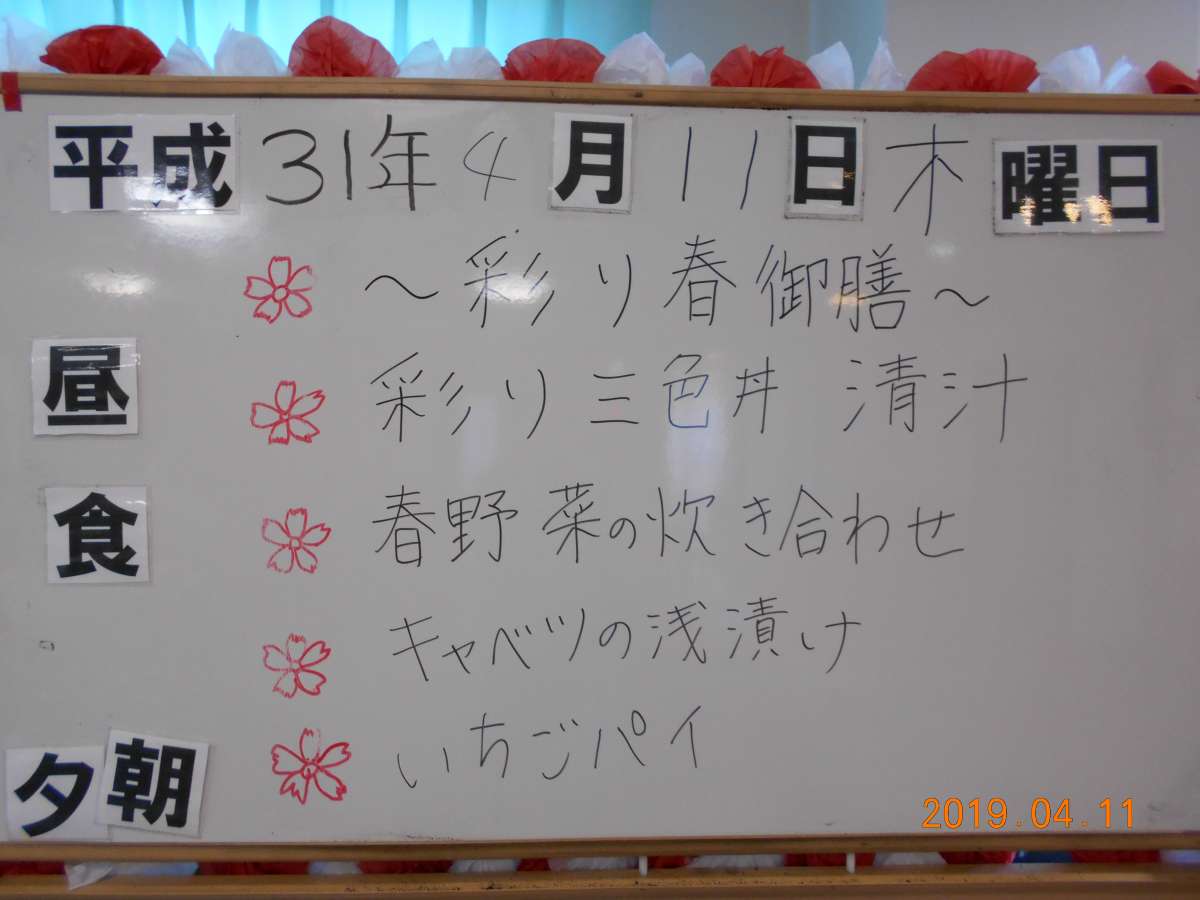 平成31年4月11日木曜日
～彩り春御膳～
昼食
彩り三色丼 清汁
春野菜の炊き合わせ
キャベツの浅漬け
いちごパイ
夕 朝
2019.04.11